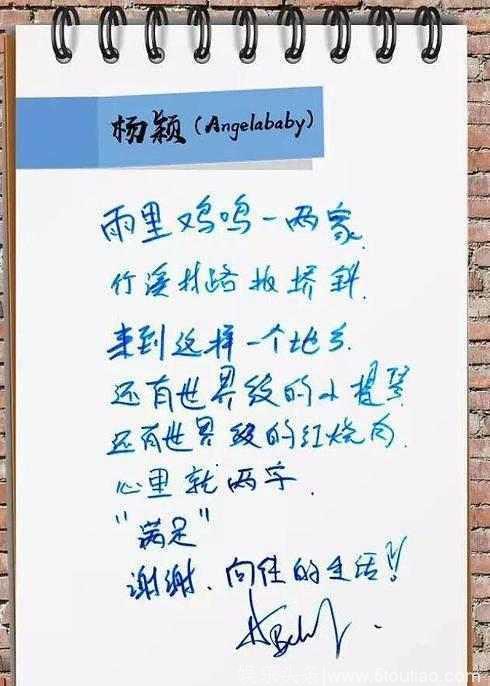 杨颖(Angelababy)
雨里鸡鸣一两家.
竹溪村路板桥斜.
来到这样一个地方.
还有世界级的小提琴
还有世界级的红烧肉.
心里就两字.
"满足"
谢谢.向往的生活!!
www.5toutiao.com